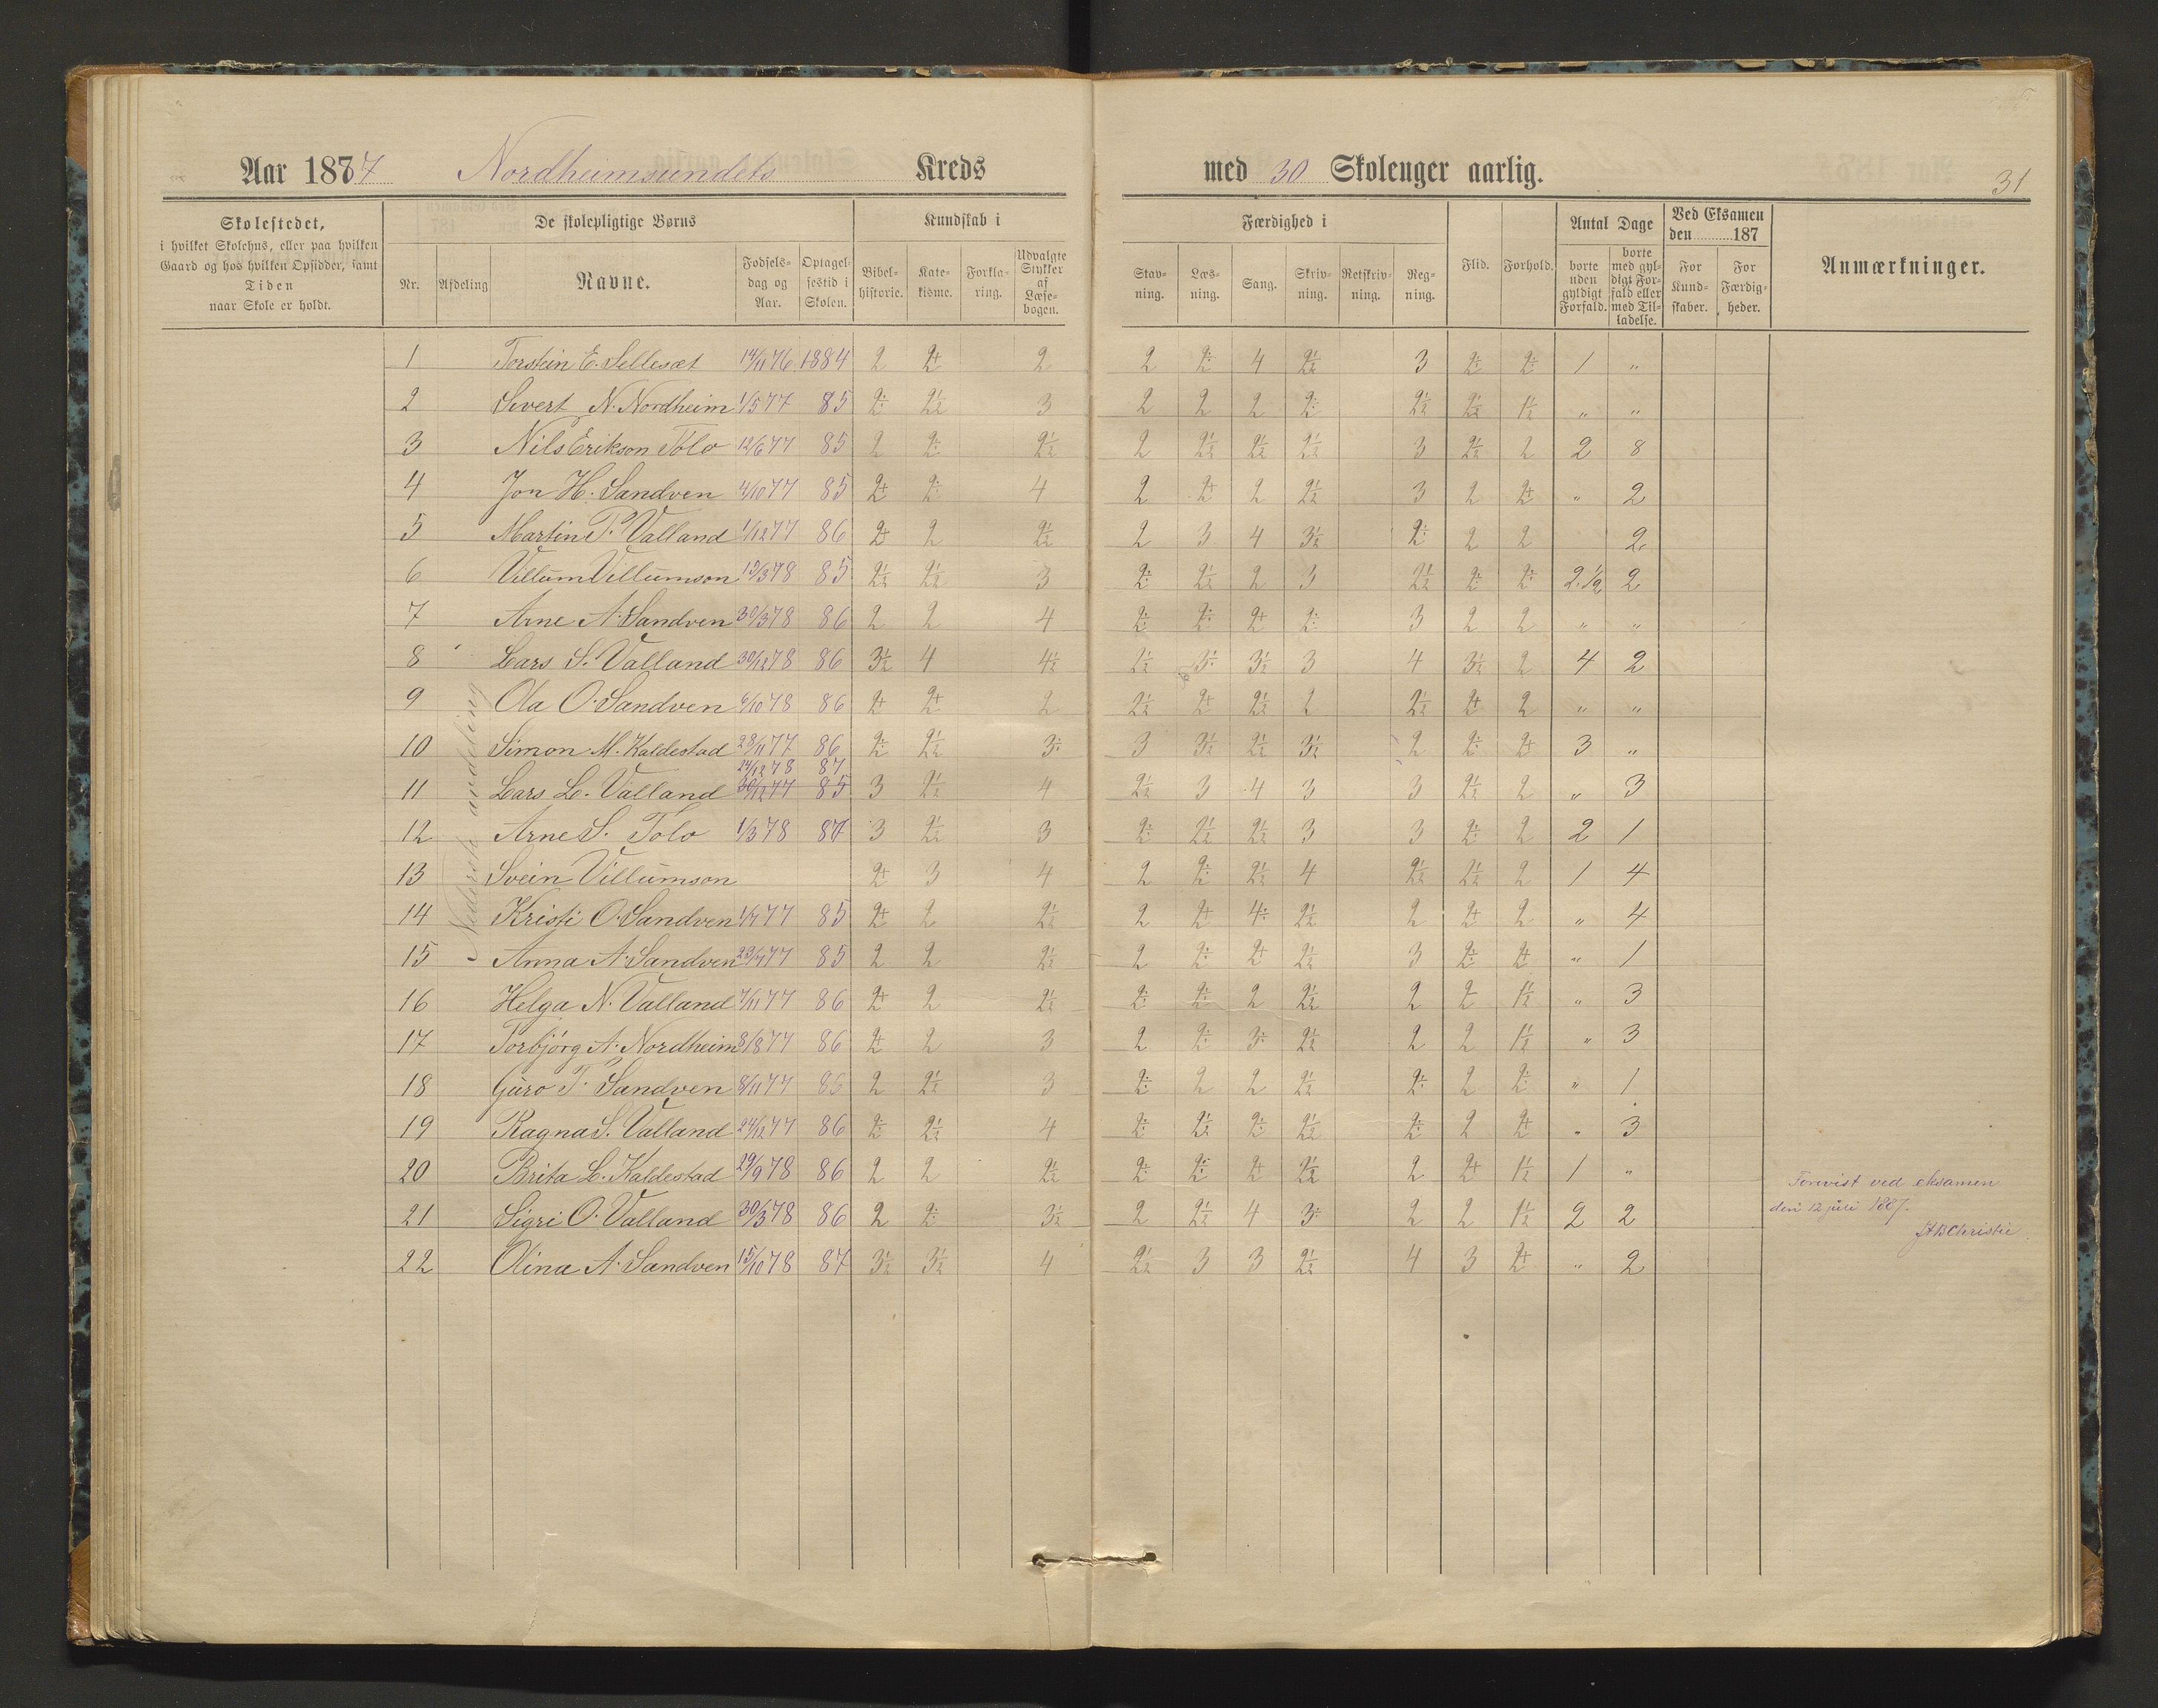 Aar 1887 Nordheimsundets Kreds med 30 Skolenger aarlig.
31
Skolestedet, i hvilket Skolehus, eller paa hvilken Gaard og hos hvilken Opsidder, samt Tiden naar Skole er holdt.
De skolepligtige Børns
Nr. Afdeling Navne. Fødselsdag og Aar. Optagelsestid i Skolen.
Kundskab i
Bibelhistorie. Katekisme. Forklaring. Udvalgte Stykker af Læsebogen.
Færdighed i
Stavning. Læsning. Sang. Skrivning. Retskrivning. Regning.
Flid. Forhold.
Antal Dage
borte uden gyldigt Forfald. borte med gyldigt Forfald eller med Tilladelse.
Ved Eksamen den 187
For Kundskaber. For Færdigheder.
Anmærkninger.
Nederste afdeling
1 Torstein E. Sellesæt 14/11 76 1884 2 2+ 2 2 2÷ 4 2½ 3 2÷ 2÷ 1 "
2 Sivert N. Nordheim 1/5 77 85 2÷ 2½ 3 2 2 2 2÷ 2½ 2½ 1½ " "
3 Nils Erikson Tolo 12/6 77 85 2 2÷ 2½ 2 2½ 2½ 2½ 3 2½ 2 2 8
4 Jon H. Sandven 4/10 77 85 2+ 2÷ 4 2 2+ 2 2½ 3 2 2+ " 2
5 Martin P. Valland 1/12 77 86 2+ 2 2½ 2 3 4 3½ 2÷ 2 2 2
6 Villum Villumson 15/3 78 85 2½ 2½ 3 2÷ 2½ 2 3 2½ 2÷ 2÷ 2 1/2 2
7 Arne A. Sandven 30/3 78 86 2 2 4 2÷ 2÷ 2+ 2÷ 3 2 2 " "
8 Lars S. Valland 30/12 78 86 3½ 4 4½ 2½ 3÷ 3½ 3 4 3½ 2 4 2
9 Ola O. Sandven 6/10 78 86 2+ 2+ 2 2½ 2+ 2½ 2 2½ 2+ 2 " "
10 Simon M. Kaldestad 28/11 77 86 2÷ 2½ 3÷ 3 3½ 2½ 3½ 2 2÷ 2+ 3 "
24/12 78 87
11 Lars L. Valland 30/12 77 85 3 2½ 4 2½ 3 4 3 3 2½ 2 " 3
12 Arne S. Tolo 1/3 78 87 3 2½ 3 2÷ 2½ 2½ 3 3 2÷ 2 2 1
13 Svein Villumson 2+ 3 4 2 2÷ 2½ 4 2½ 2½ 2 1 4
14 Kristi O. Sandven 1/7 77 85 2+ 2 2½ 2 2+ 4÷ 2½ 2 2+ 2 " 4
15 Anna A. Sandven 29/7 77 85 2 2 2½ 2 2÷ 2+ 2½ 3 2÷ 2+ " 1
16 Helga N. Valland 7/11 77 86 2+ 2 2½ 2÷ 2÷ 2 2½ 2 2 1½ " 3
17 Torbjörg A. Nordheim 8/8 77 86 2+ 2 3 2 2÷ 3÷ 2½ 2 2 1½ " 3
18 Guro T. Sandven 8/11 77 86 2 2½ 3 2÷ 2 2 2½ 2÷ 2 2÷ " 1
19 Ragna S. Valland 24/12 77 86 2÷ 2½ 4 2÷ 2½ 2÷ 2½ 2÷ 2 2+ " 3
20 Brita L. Kaldestad 29/9 78 86 2 2 2½ 2÷ 2÷ 2+ 2½ 2 2+ 1½ 1 "
21 Sigri O. Valland 30/3 78 86 2 2÷ 3½ 2 2½ 4 3÷ 2 2 1½ 2 2
22 Olina A. Sandven 15/10 78 87 3½ 3½ 4 2½ 3 3 2½ 4 3 2+ " 2
Forevist ved eksamen
den 12 juli 1887.
Christie